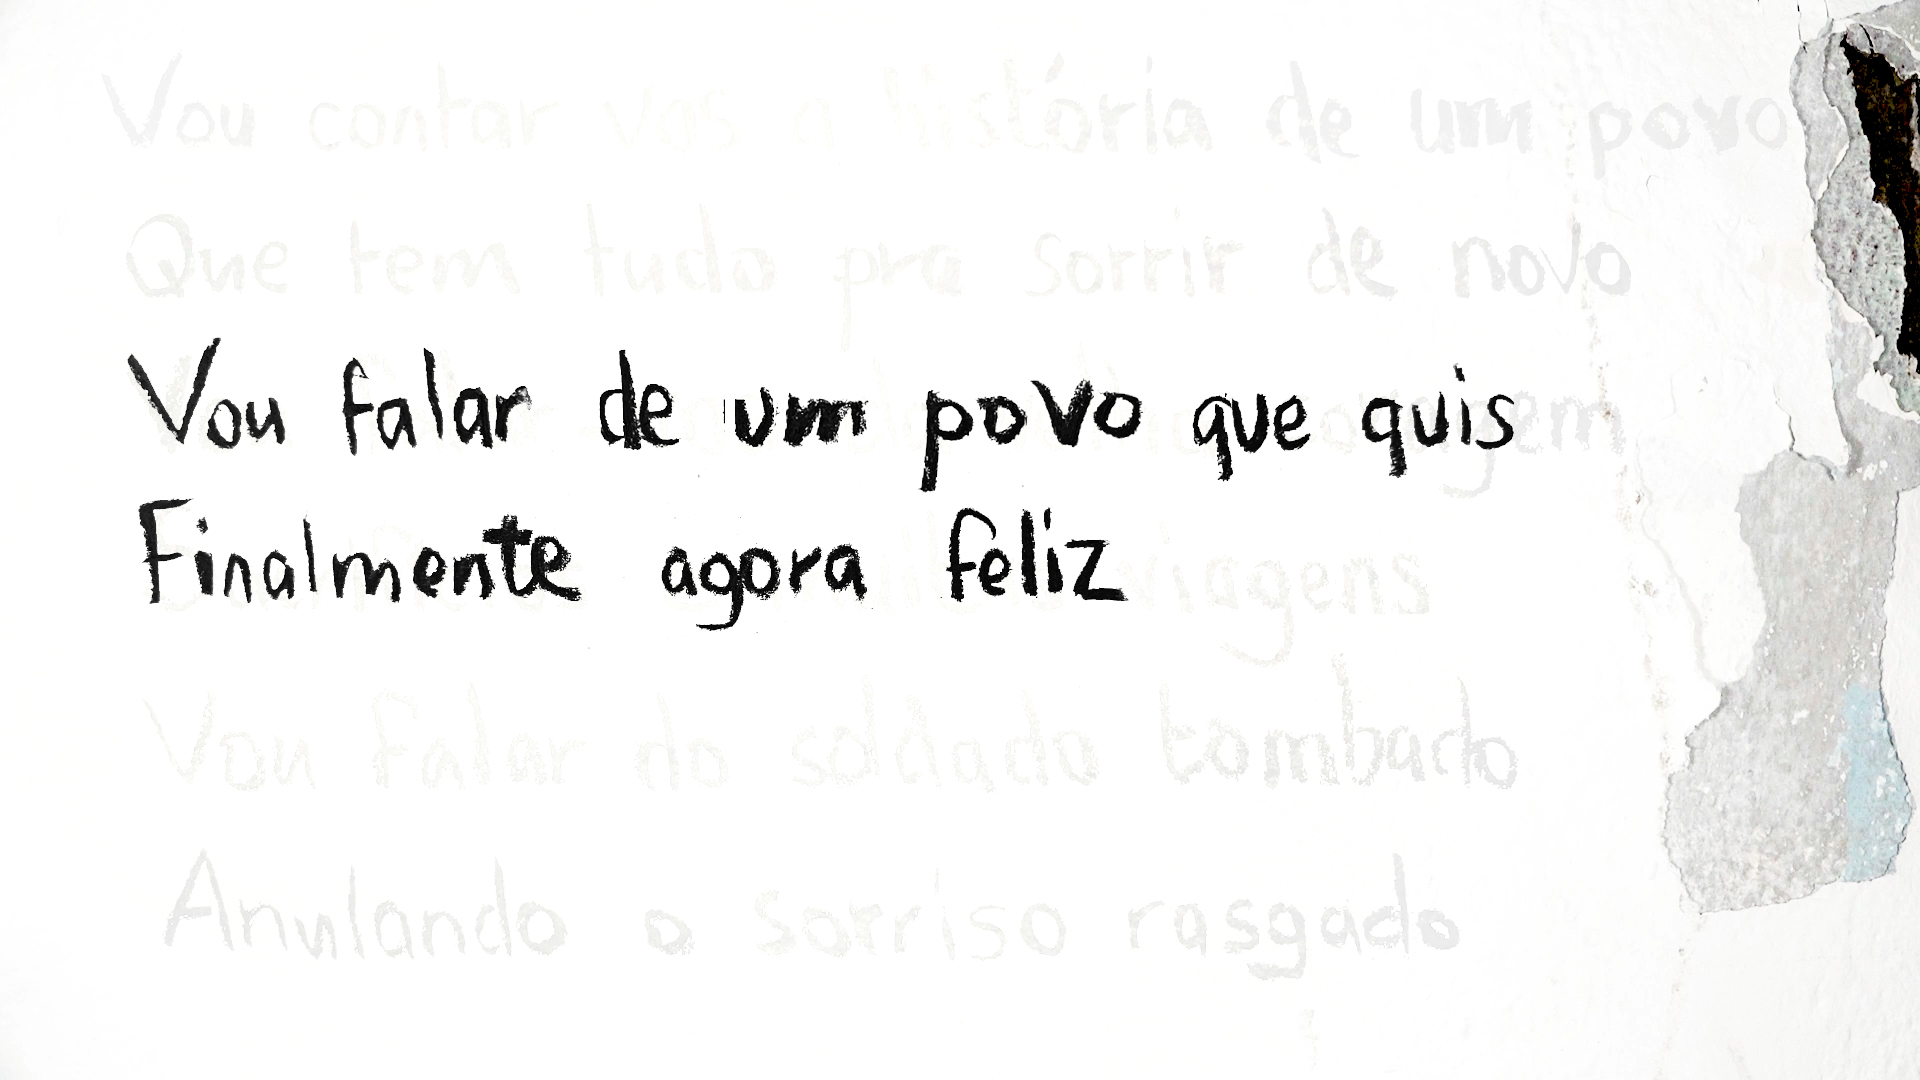 Vou contar vos a história de um povo
Que tem tudo pra sorrir de novo
Vou falar de um povo que quis
Finalmente agora feliz
Vou falar do soldado tombado
Anulando o sorriso rasgado